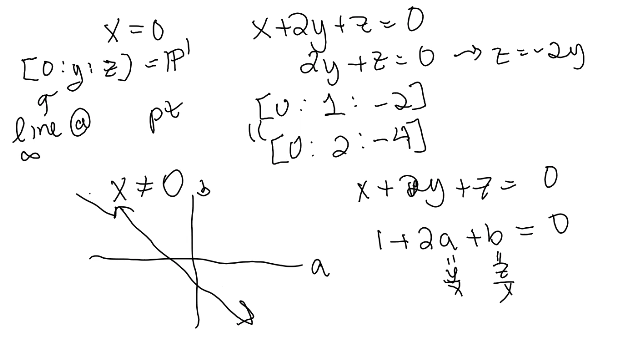 x = 0
[0 : y : z] = ℙ¹
line @ ∞
pt
x + 2y + z = 0
2y + z = 0 → z = -2y
[0 : 1 : -2]
=
[0 : 2 : -4]
x ≠ 0
b
a
x + 2y + z = 0
1 + 2a + b = 0
= =
y/x z/x